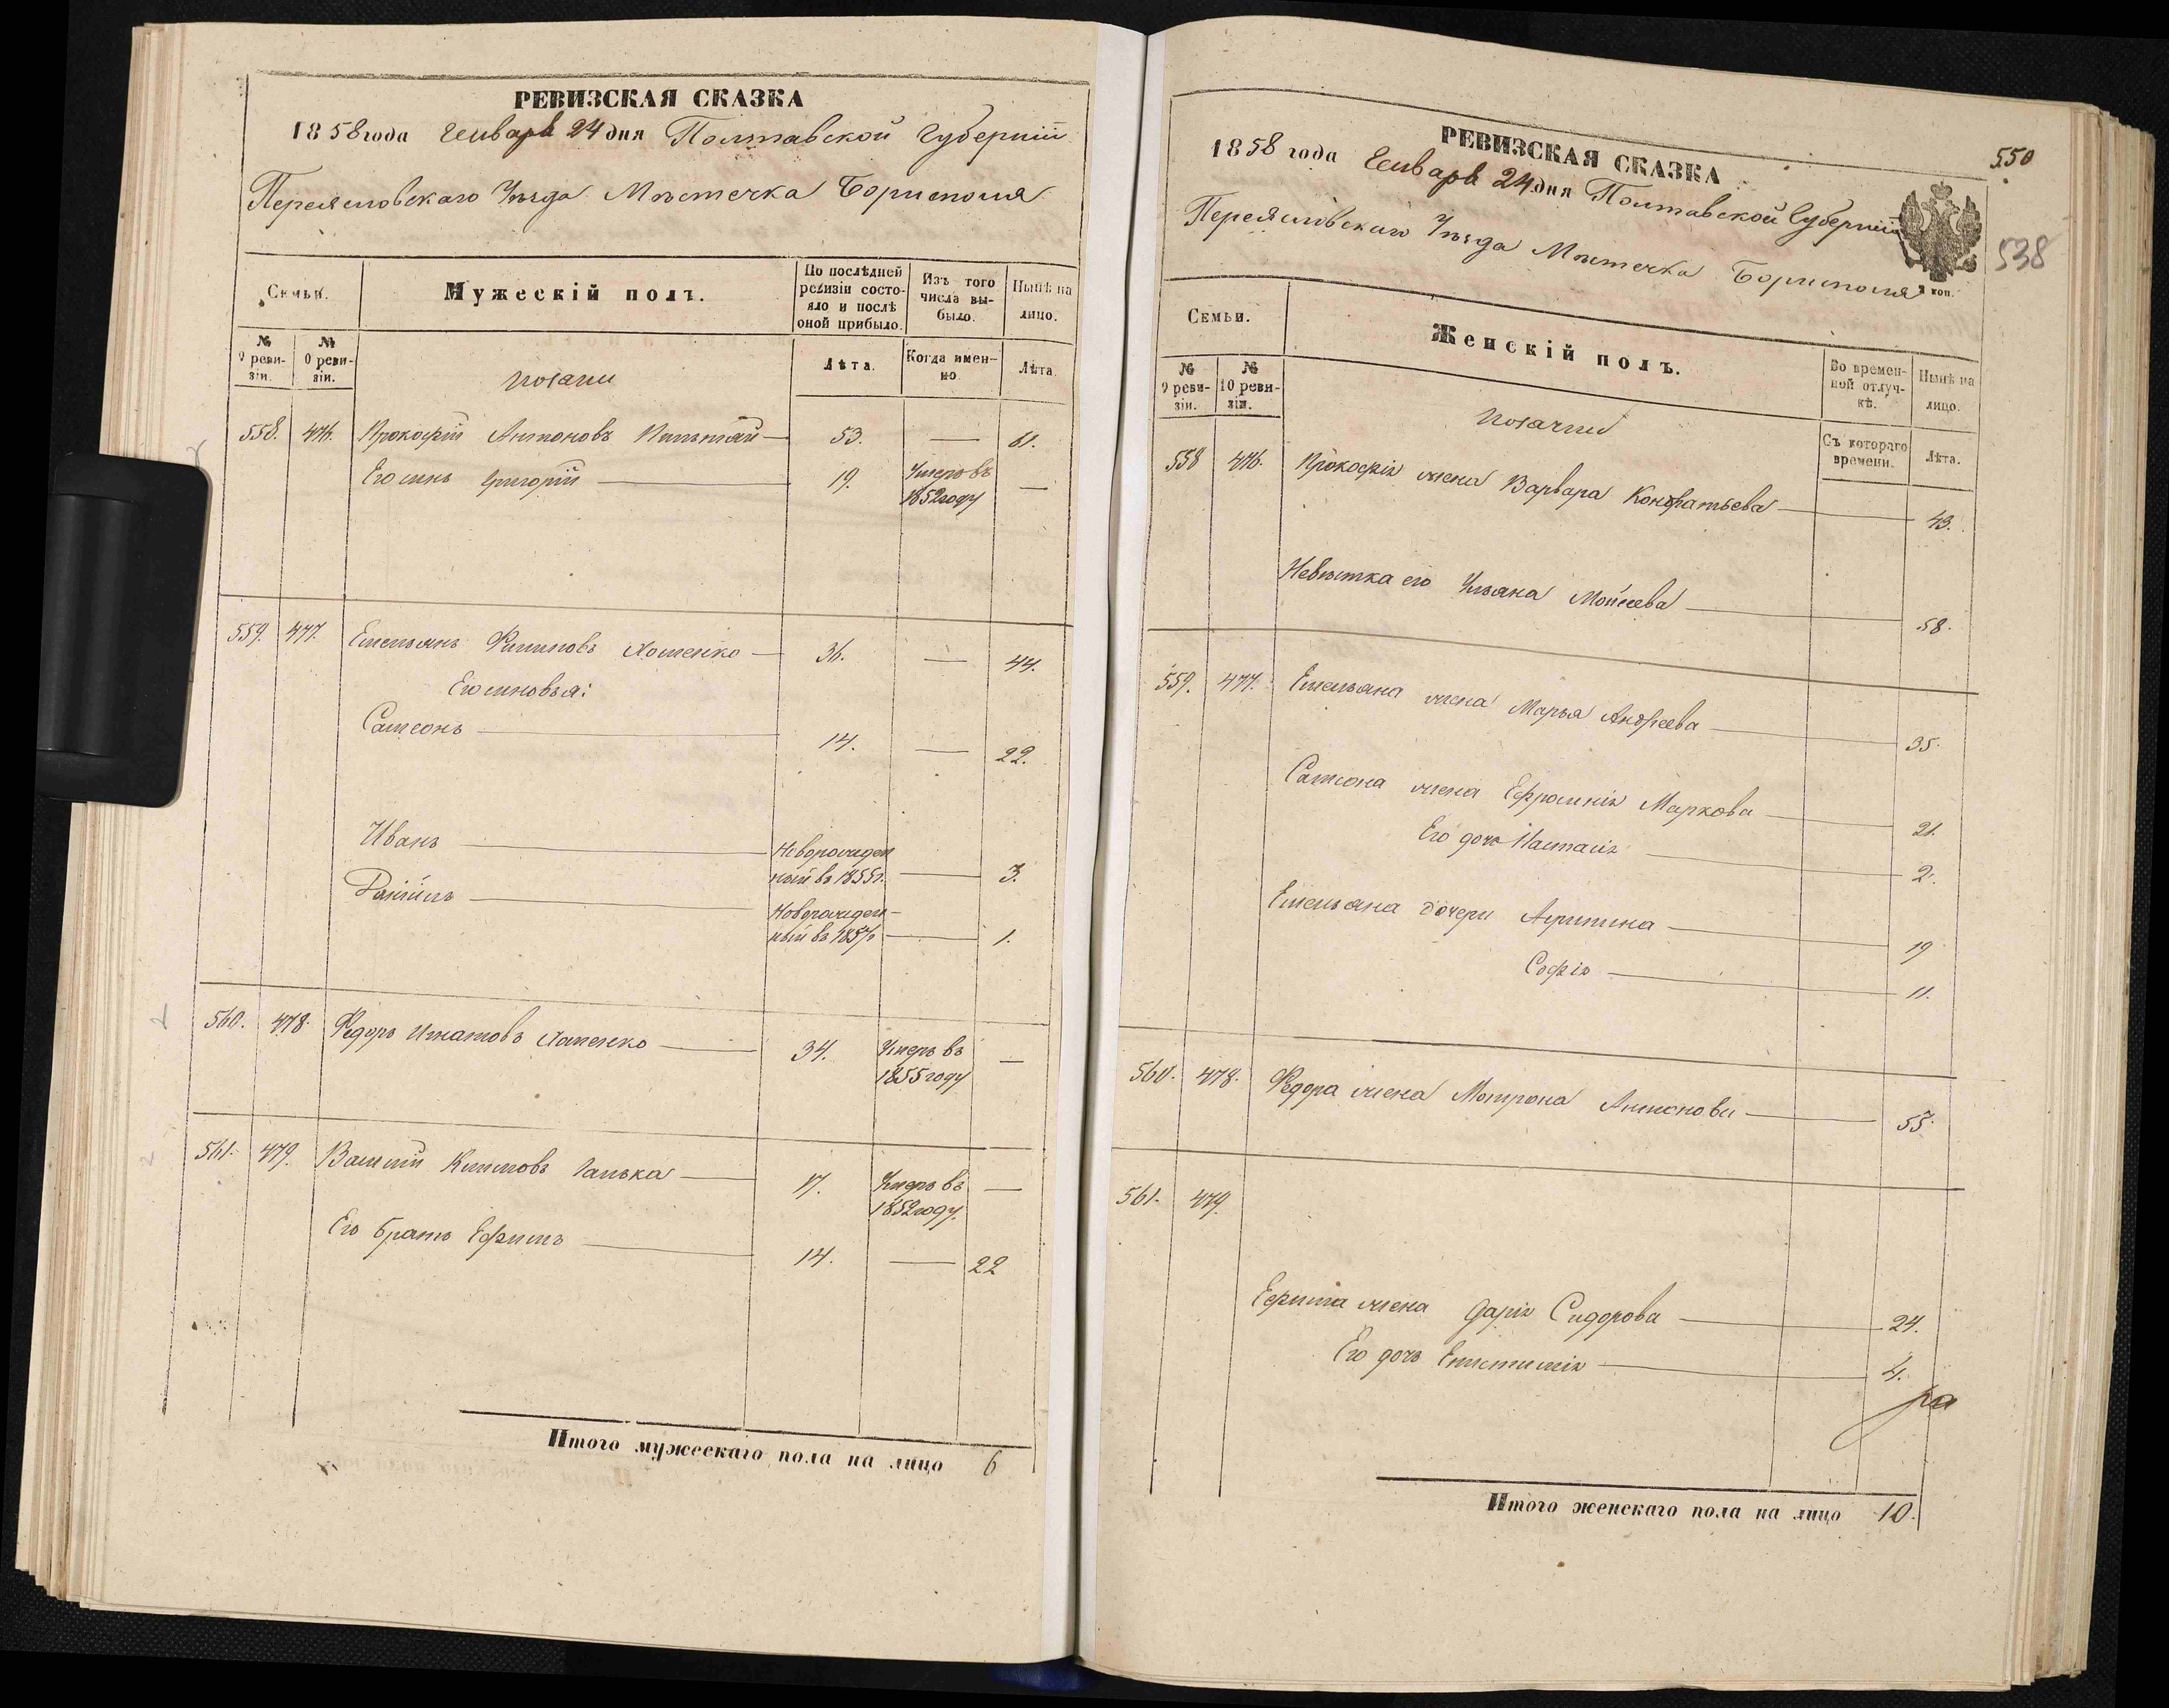 РЕВИЗСКАЯ СКАЗКА
1858 года Генваря 24 дня Полтавской Губерніи
Переяславскаго Уѣзда Мѣстечка Борисполя
Семьи.
Мужескій полъ.
По послѣдней ревизіи состояло и послѣ оной прибыло.
Изъ того числа выбыло.
Нынѣ на лицо.
№ 9 ревизіи.
№ 0 ревизіи.
Лѣта.
Когда именно.
Лѣта.
558. 476. Прокофій Антоновъ 53. — 61.
Его сынъ Григорій — 19. Умеръ въ 1852 году —
559. 477. Емельянъ Филиповъ — 36. — 44.
Его сыновья:
Самсонъ — 14. — 22.
Иванъ — Новорожденный въ 1855 г. — 3.
Даніилъ — Новорожденный въ 1857 г. — 1.
560. 478. Федоръ Игнатовъ — 34. Умеръ въ 1855 году —
561. 479. Василій Галька — 17. Умеръ въ 1852 году. —
Его братъ Ефимъ — 14. — 22
Итого мужескаго пола на лицо 6
550
538
РЕВИЗСКАЯ СКАЗКА
1858 года Генваря 24 дня Полтавской Губерніи
Переяславскаго Уѣзда Мѣстечка Борисполя
коп.
Семьи.
Женскій полъ.
Во временной отлучкѣ.
Нынѣ на лицо.
№ 9 ревизіи.
№ 10 ревизіи.
Съ котораго времени.
Лѣта.
558 476. Прокофія жена Варвара Кондратьева — 43.
Невѣстка его Ульяна Мойсеева — 58.
559. 477. Емельяна жена Марья Андреева — 35.
Самсона жена Ефросинія Маркова — 21.
Его дочь Настасія — 2.
Емельяна дочери Агрипина — 19
Софія — 11.
560. 478. Федора жена Мотрона Антонова — 55.
561. 479.
Ефима жена Дарія Сидорова — 24.
Его дочь Епистимія — 4.
Итого женскаго пола на лицо 10.